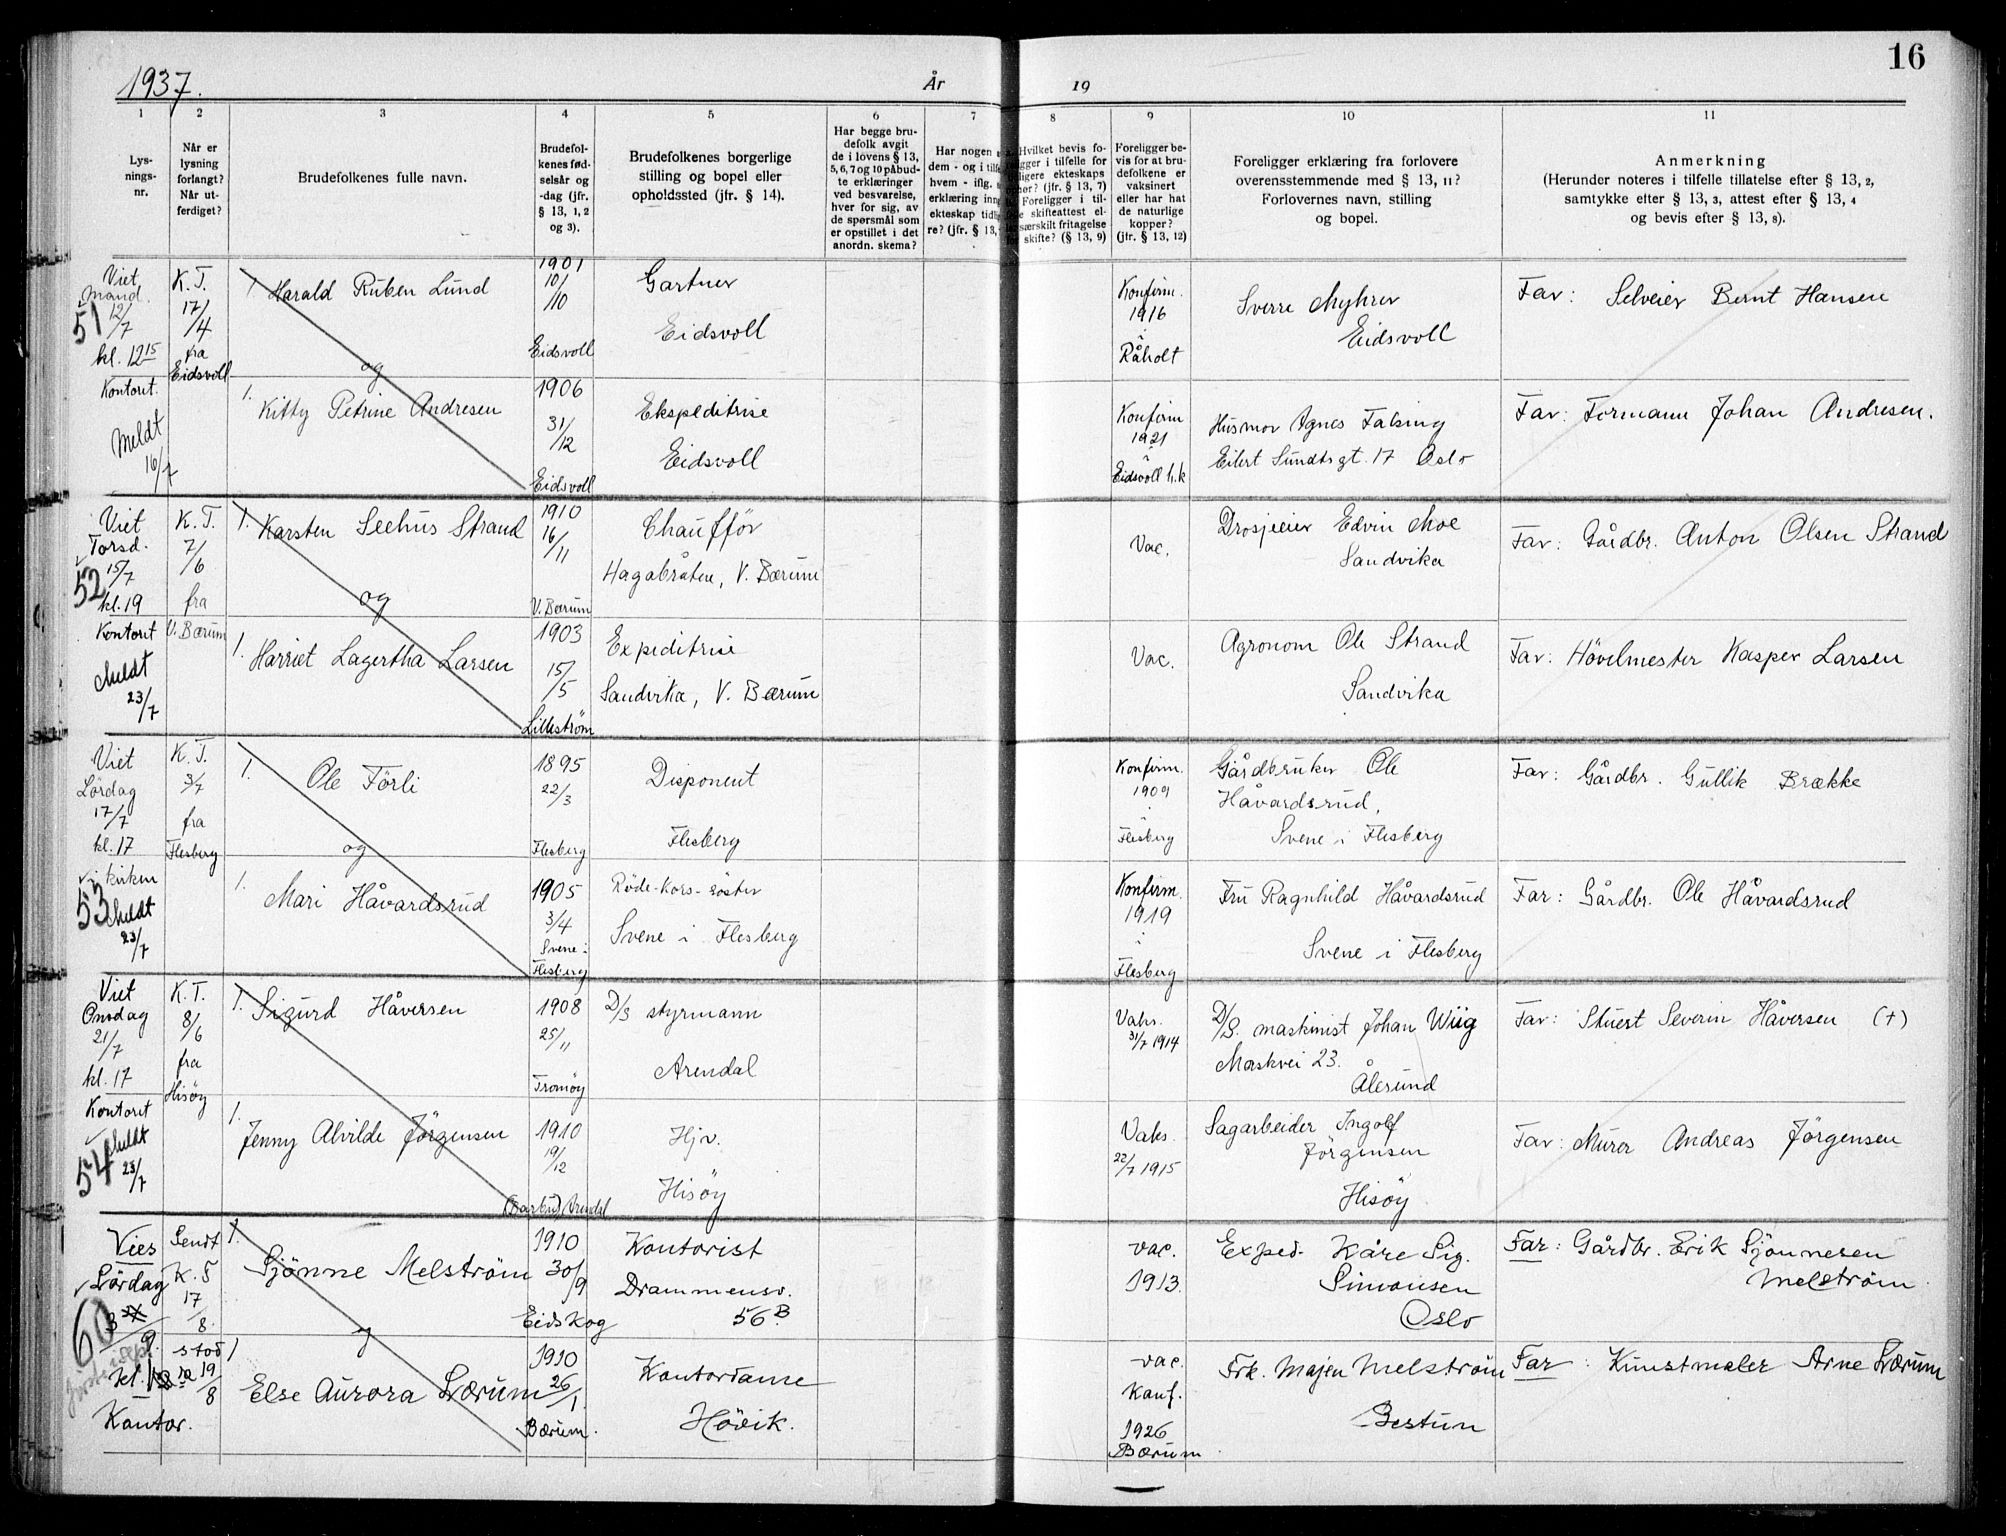 1937.
År
19
16
1
2
3
4
5
6
7
8
9
10
11
Lys-
nings-
nr.
Når er
lysning
forlangt?
Når ut-
ferdiget?
Brudefolkenes fulle navn.
Brudefol-
kenes fød-
selsår og
-dag (jfr.
§ 13, 1, 2
og 3).
Brudefolkenes borgerlige
stilling og bopel eller
opholdssted (jfr. § 14).
Har begge bru-
defolk avgit
de i lovens § 13,
5, 6, 7 og 10 påbud-
te erklæringer
ved besvarelse,
hver for sig, av
de spørsmål som
er opstillet i det
anordn. skema?
Har nogen
dem - og i
hvem - iflg.
erklæring
ekteskap
re? (jfr. § 13,
Hvilket bevis fo-
i tilfelle for
ekteskaps
(jfr. § 13, 7)
Foreligger i til-
skifteattest el-
særskilt fritagelse
skifte? (§ 13, 9)
Foreligger be-
vis for at bru-
defolkene er
vaksinert
eller har hat
de naturlige
kopper?
(jfr. § 13, 12)
Foreligger erklæring fra forlovere
overensstemmende med § 13, 11?
Forlovernes navn, stilling
og bopel.
Anmerkning
(Herunder noteres i tilfelle tillatelse efter § 13, 2,
samtykke efter § 13, 3, attest efter § 13, 4
og bevis efter § 13, 8).
51
Viet
Mand.
12/7
kl. 12 15
Kontoret.
Meldt
16/7
K. T.
17/4
fra
Eidsvoll
1. Harald Ruben Lund
og
1. Kitty Petrine Andresen
1901
10/10
Eidsvoll
1906
31/12
Eidsvoll
Gartner
Eidsvoll
Ekspeditrise
Eidsvoll
Konfirm.
1916
i
Råholt
Konfirm
1921
i
Eidsvoll h.k
Sverre Myhrer
Eidsvoll
Husmor Agnes Falsing
Eilert Sundtsgt. 17 Oslo
Far: Selveier Bernt Hansen
Far: Formann Johan Andresen.
52
Viet
Torsd.
15/7
kl. 19
Kontoret
Meldt
23/7
K. T.
7/6
fra
V. Bærum
1. Karsten Seehus Strand
og
1. Harriet Lagertha Larsen
1910
16/11
V. Bærum
1903
15/5
Lilleström
Chaufför
Hagabråten, V. Bærum
Expeditrise
Sandvika, V. Bærum
Vac.
Vac.
Drosjeeier Edvin Moe
Sandvika
Agronom Ole Strand
Sandvika
Far: Gårdbr. Anton Olsen Strand
Far: Hövelmester Kasper Larsen
53
Viet
Lördag
17/7
kl. 17
i kirken
Meldt
23/7
K. T.
3/7
fra
Flesberg
1. Ole Förli
og
1. Mari Håvardsrud
1895
22/3
Flesberg
1905
3/4
Svene i
Flesberg
Disponent
Flesberg
Røde-Kors-söster
Svene i Flesberg
Konfirm.
1909
i
Flesberg
Konfirm.
1919
i
Flesberg
Gårdbruker Ole
Håvardsrud,
Svene i Flesberg
Fru Ragnhild Håvardsrud
Svene i Flesberg
Far: Gårdbr. Gullik Brække
Far: Gårdbr. Ole Håvardsrud
54
Viet
Onsdag
21/7
kl. 17
Kontoret
Meldt
23/7
K. T.
8/6
fra
Hisöy
1. Sigurd Håversen
1. Jenny Alvilde Jörgensen
1908
25/11
Tromöy
1910
19/12
(Barbu) Arendal
D/S styrmann
Arendal
Hjv.
Hisöy
Vaks.
31/7 1914
Vaks.
22/7 1915
D/S. maskinist Johan Wiig
Maskvei 23.
Ålesund
Sagarbeider Ingolf
Jörgensen
Hisöy
Far: Stuert Severin Håversen (+)
Far: Murer Andreas Jörgensen
60
Vies
Lördag
9.
kl.
Kontor.
Sendt
K. T
17/8.
stod
19/8
1. Sjönne Melström
og
1 Else Aurora Lærum
1910
30/9
Eidskog
1910
26/1.
Bærum.
Kontorist
Drammensv.
56 B
Kontordame
Hövik.
vac.
1913.
vac.
Konf.
1926
Bærum
Exped. Kåre Sig.
Simonsen
Oslo
Frk. Majen Melström
Bestum
Far: Gårdbr. Erik Sjönnesen
Melström
Far: Kunstmaler Arne Lærum